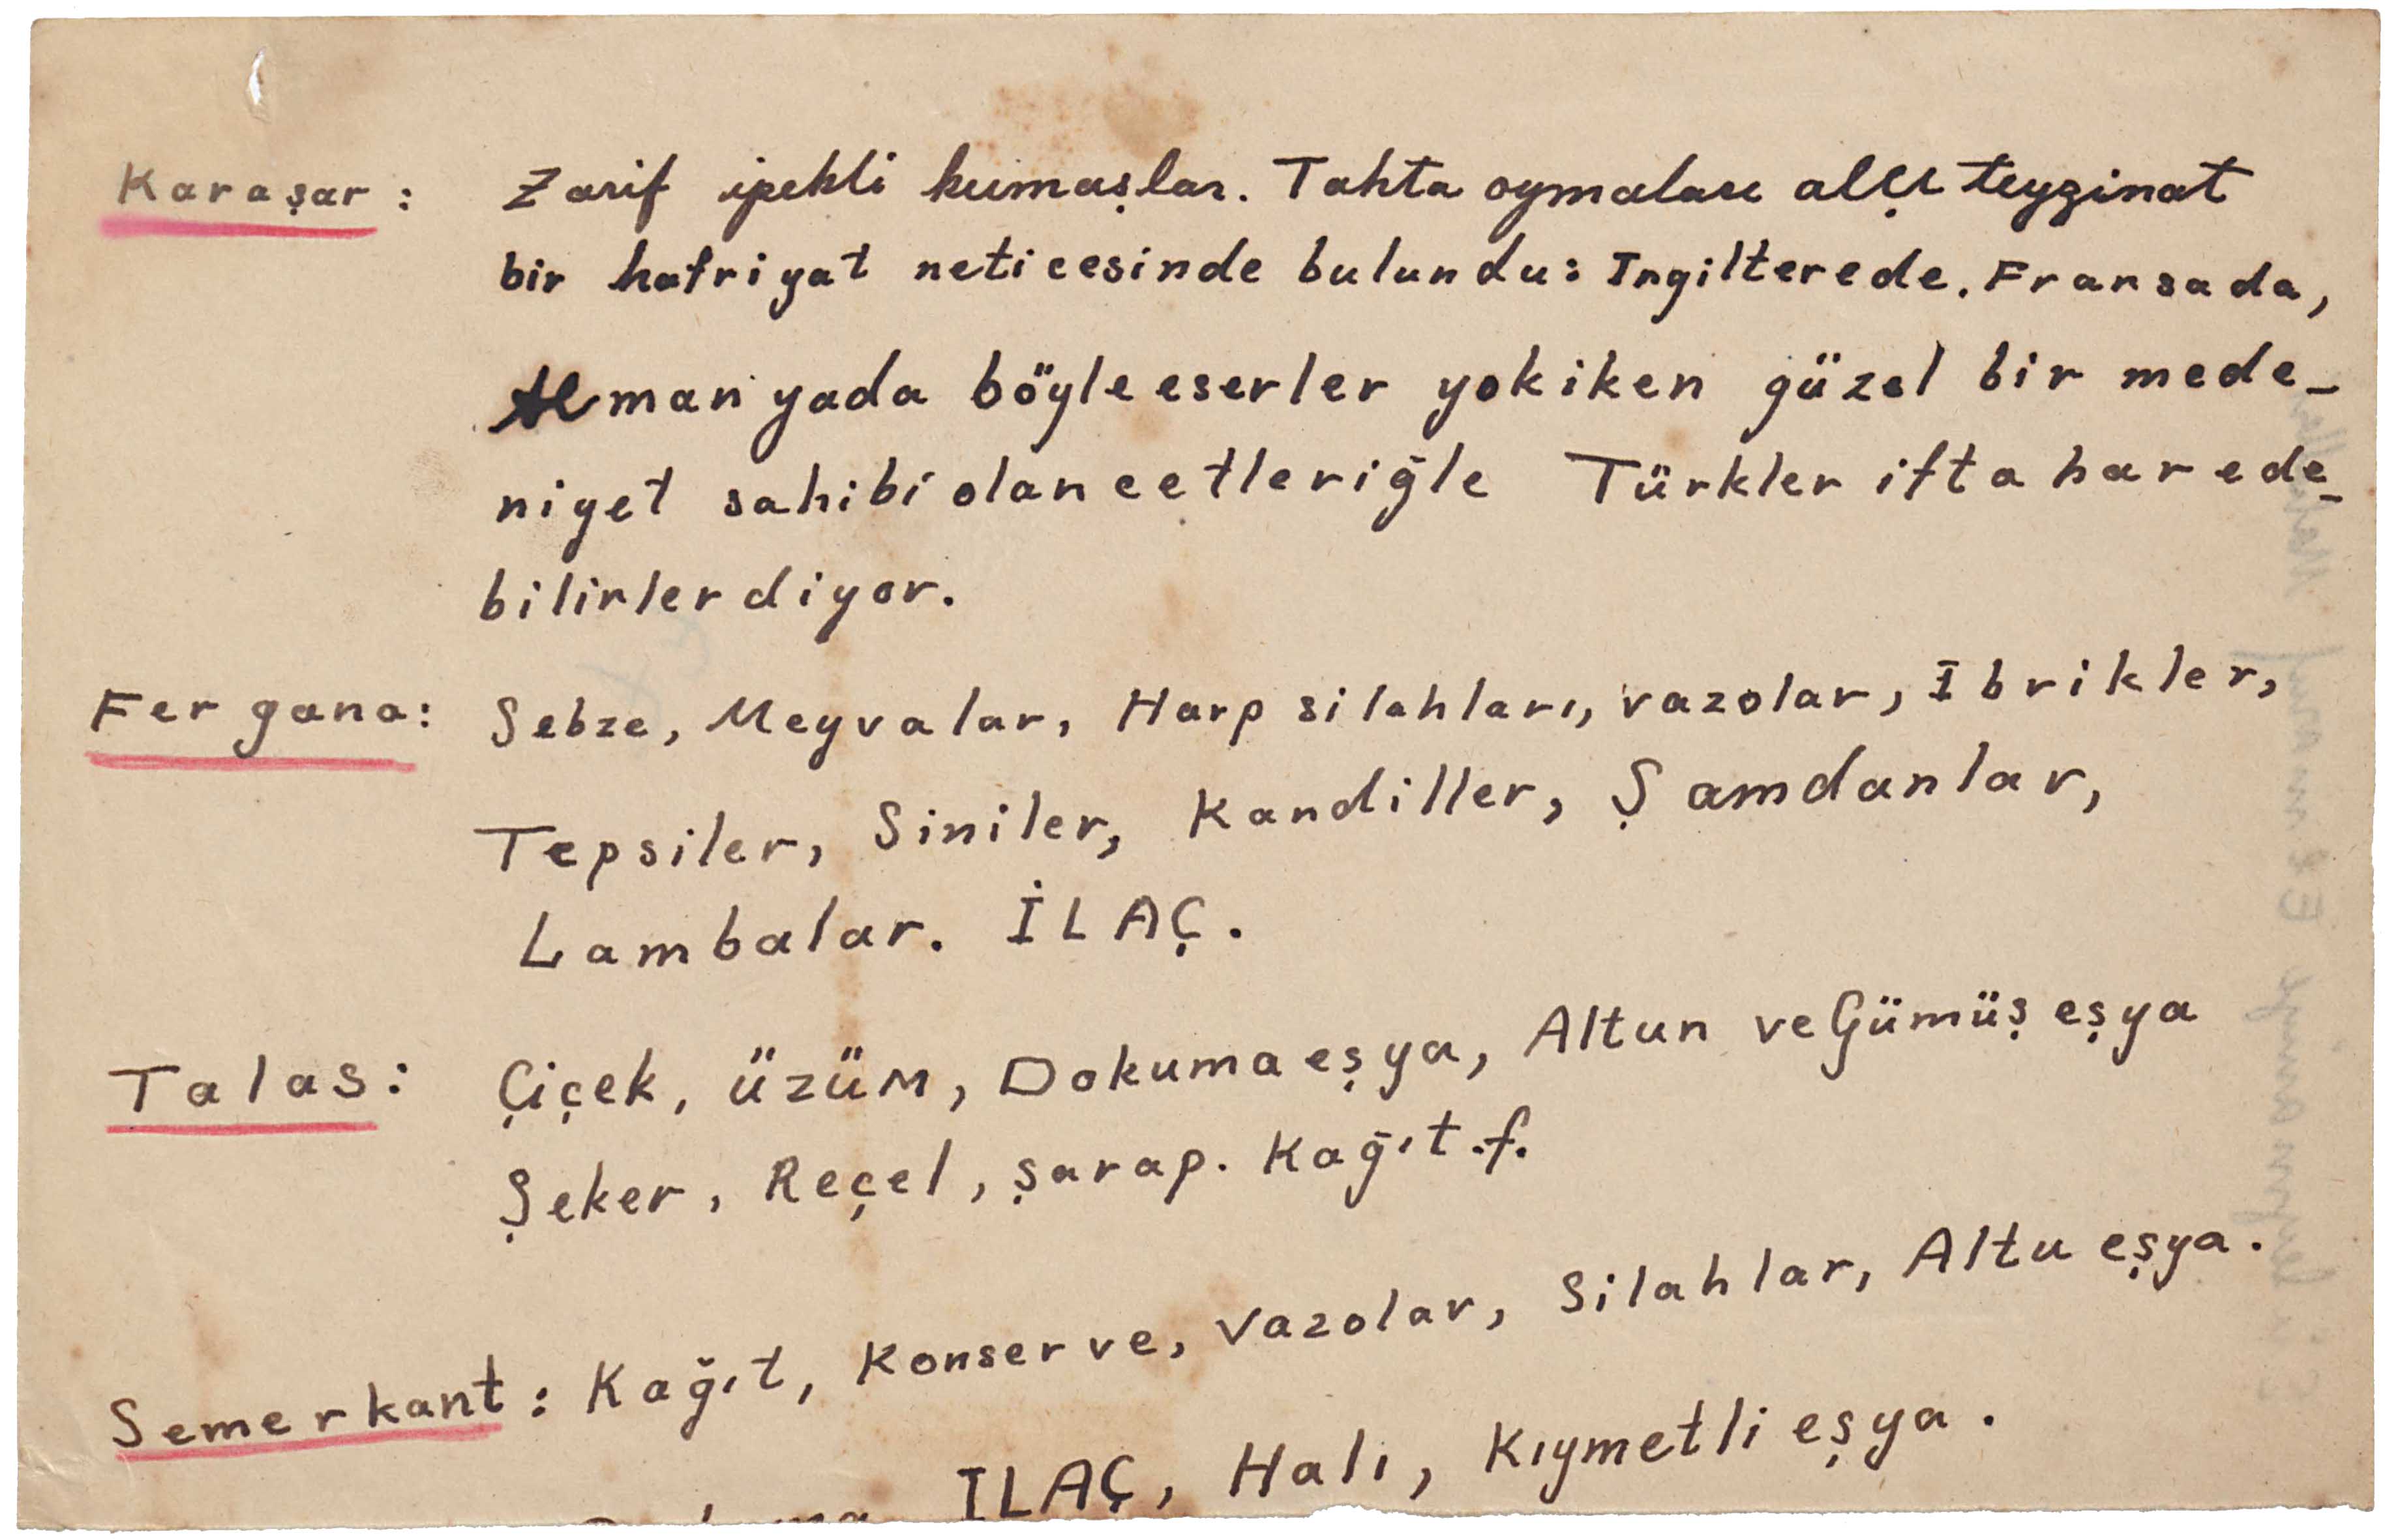 Karaşar : Zarif ipekli kumaşlar. Tahta oymaları alçı teyzinat
bir hafriyat neticesinde bulundu: Ingilterede. Fransada,
Almanyada böyle eserler yokiken güzel bir mede-
niyet sahibi olan cetleriğle Türkler iftahar ede-
bilirler diyor.
Fergana: Sebze, Meyvalar, Harp silahları, vazolar, Ibrikler,
Tepsiler, Siniler, Kandiller, Şamdanlar,
Lambalar. İLAÇ.
Talas: Çiçek, üzüm, Dokuma eşya, Altun ve Gümüş eşya
Şeker, Reçel, şarap. Kağıt.f.
Semerkant: Kağıt, Konserve, Vazolar, Silahlar, Altu eşya.
ILAÇ, Halı, Kıymetli eşya.